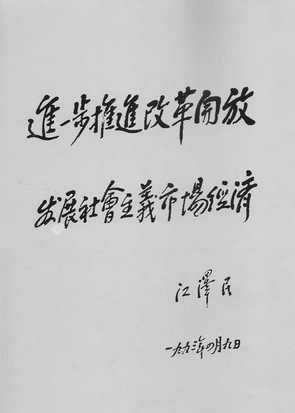 進一步推進改革開放
发展社會主義市場經濟
江澤民
一九九三年四月九日